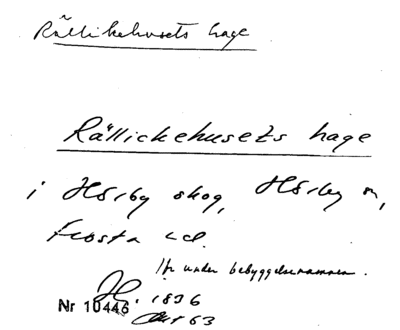 Rällikehusets hage
Rällickehusets hage
i Hörby skog, Hörby sn,
Frosta hd.
Jfr under bebyggelsenamnen.
1836
Nr 10446
Akt 63